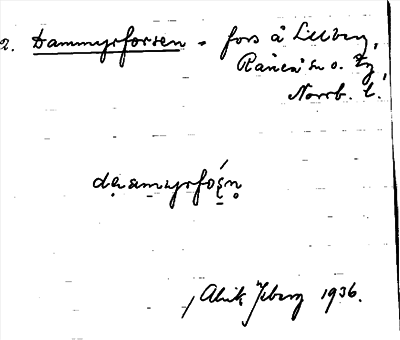 2. Dammyrforsen - fors å Lillberg,
Råneå sn o. tg,
Norrb. l.
Alrik Ysberg 1936.